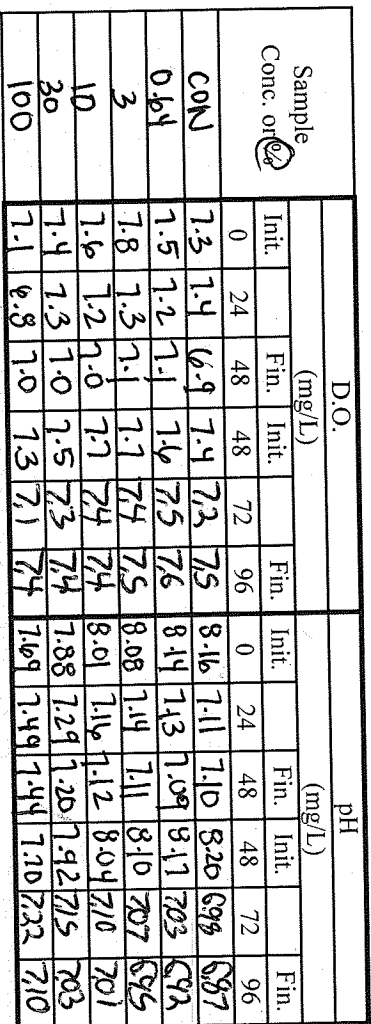 Sample Conc. or % D.O. (mg/L) pH (mg/L)
Init. Fin. Init. Fin. Init. Fin. Init. Fin.
0 24 48 48 72 96 0 24 48 48 72 96
CON 7.3 7.4 6.9 7.4 7.2 7.5 8.16 7.11 7.10 8.20 6.98 6.87
0.64 7.5 7.2 7.1 7.6 7.5 7.6 8.14 7.13 7.09 8.17 7.03 6.92
3 7.8 7.3 7.1 7.7 7.4 7.5 8.08 7.14 7.11 8.10 7.07 6.95
10 7.6 7.2 7.0 7.7 7.4 7.4 8.01 7.16 7.12 8.04 7.10 7.01
30 7.4 7.3 7.0 7.5 7.3 7.4 7.88 7.29 7.20 7.92 7.15 7.03
100 7.1 6.8 7.0 7.3 7.1 7.4 7.69 7.49 7.44 7.70 7.22 7.10